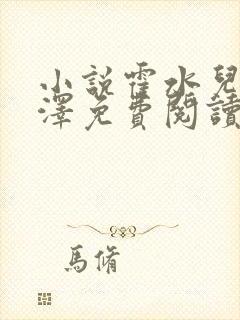 小說霍水兒
澤免費閱讀
馬脩